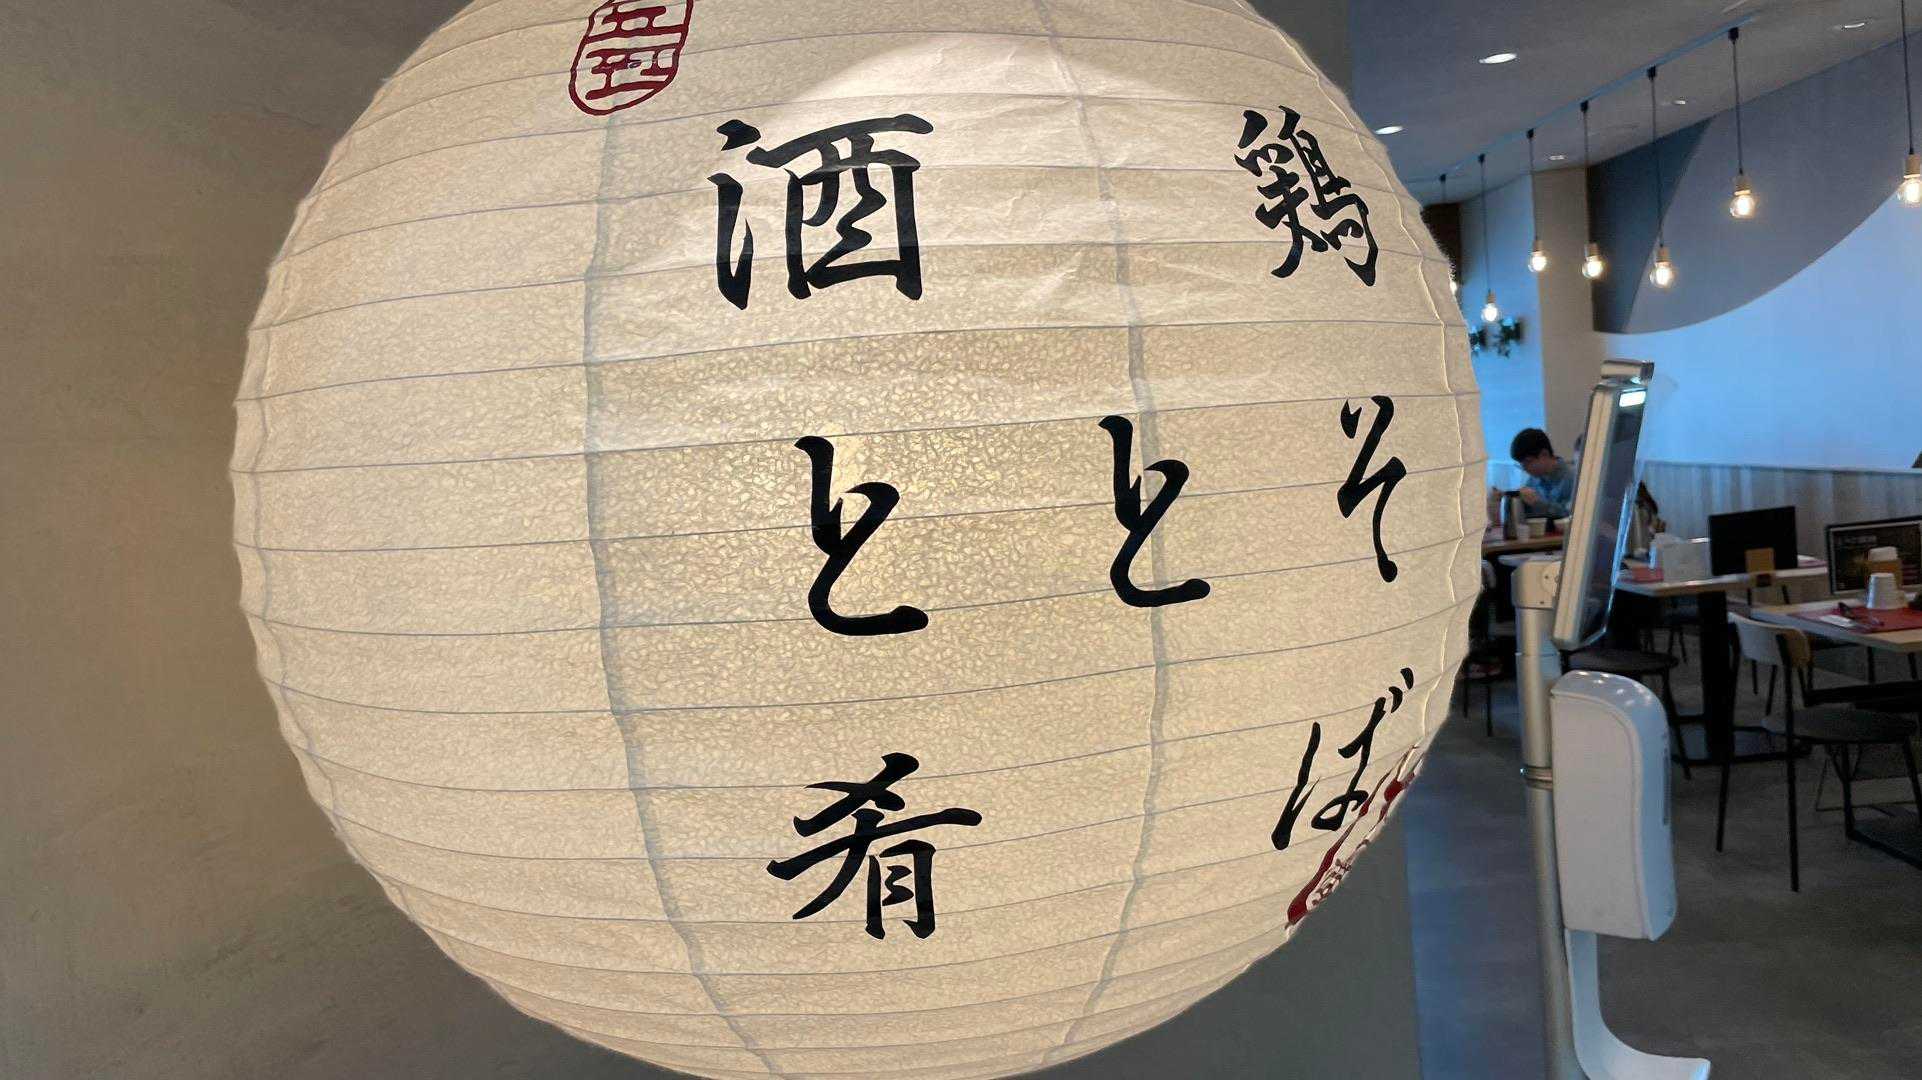 鶏そば
と
酒と肴